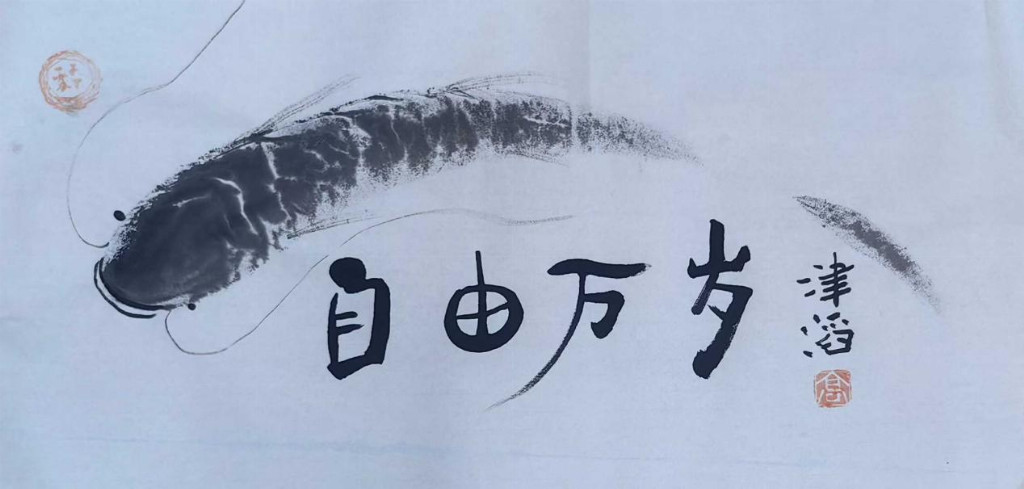 自由万岁
津滔